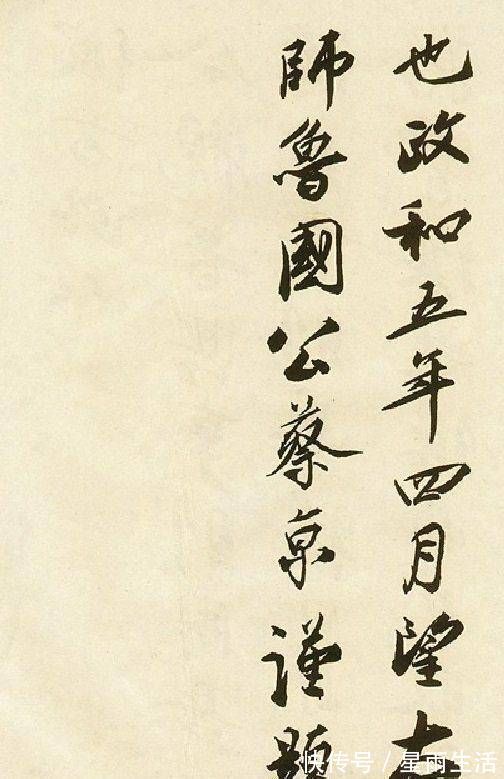 也政和五年四月望太
師魯國公蔡京謹題
快传号／星雨生活